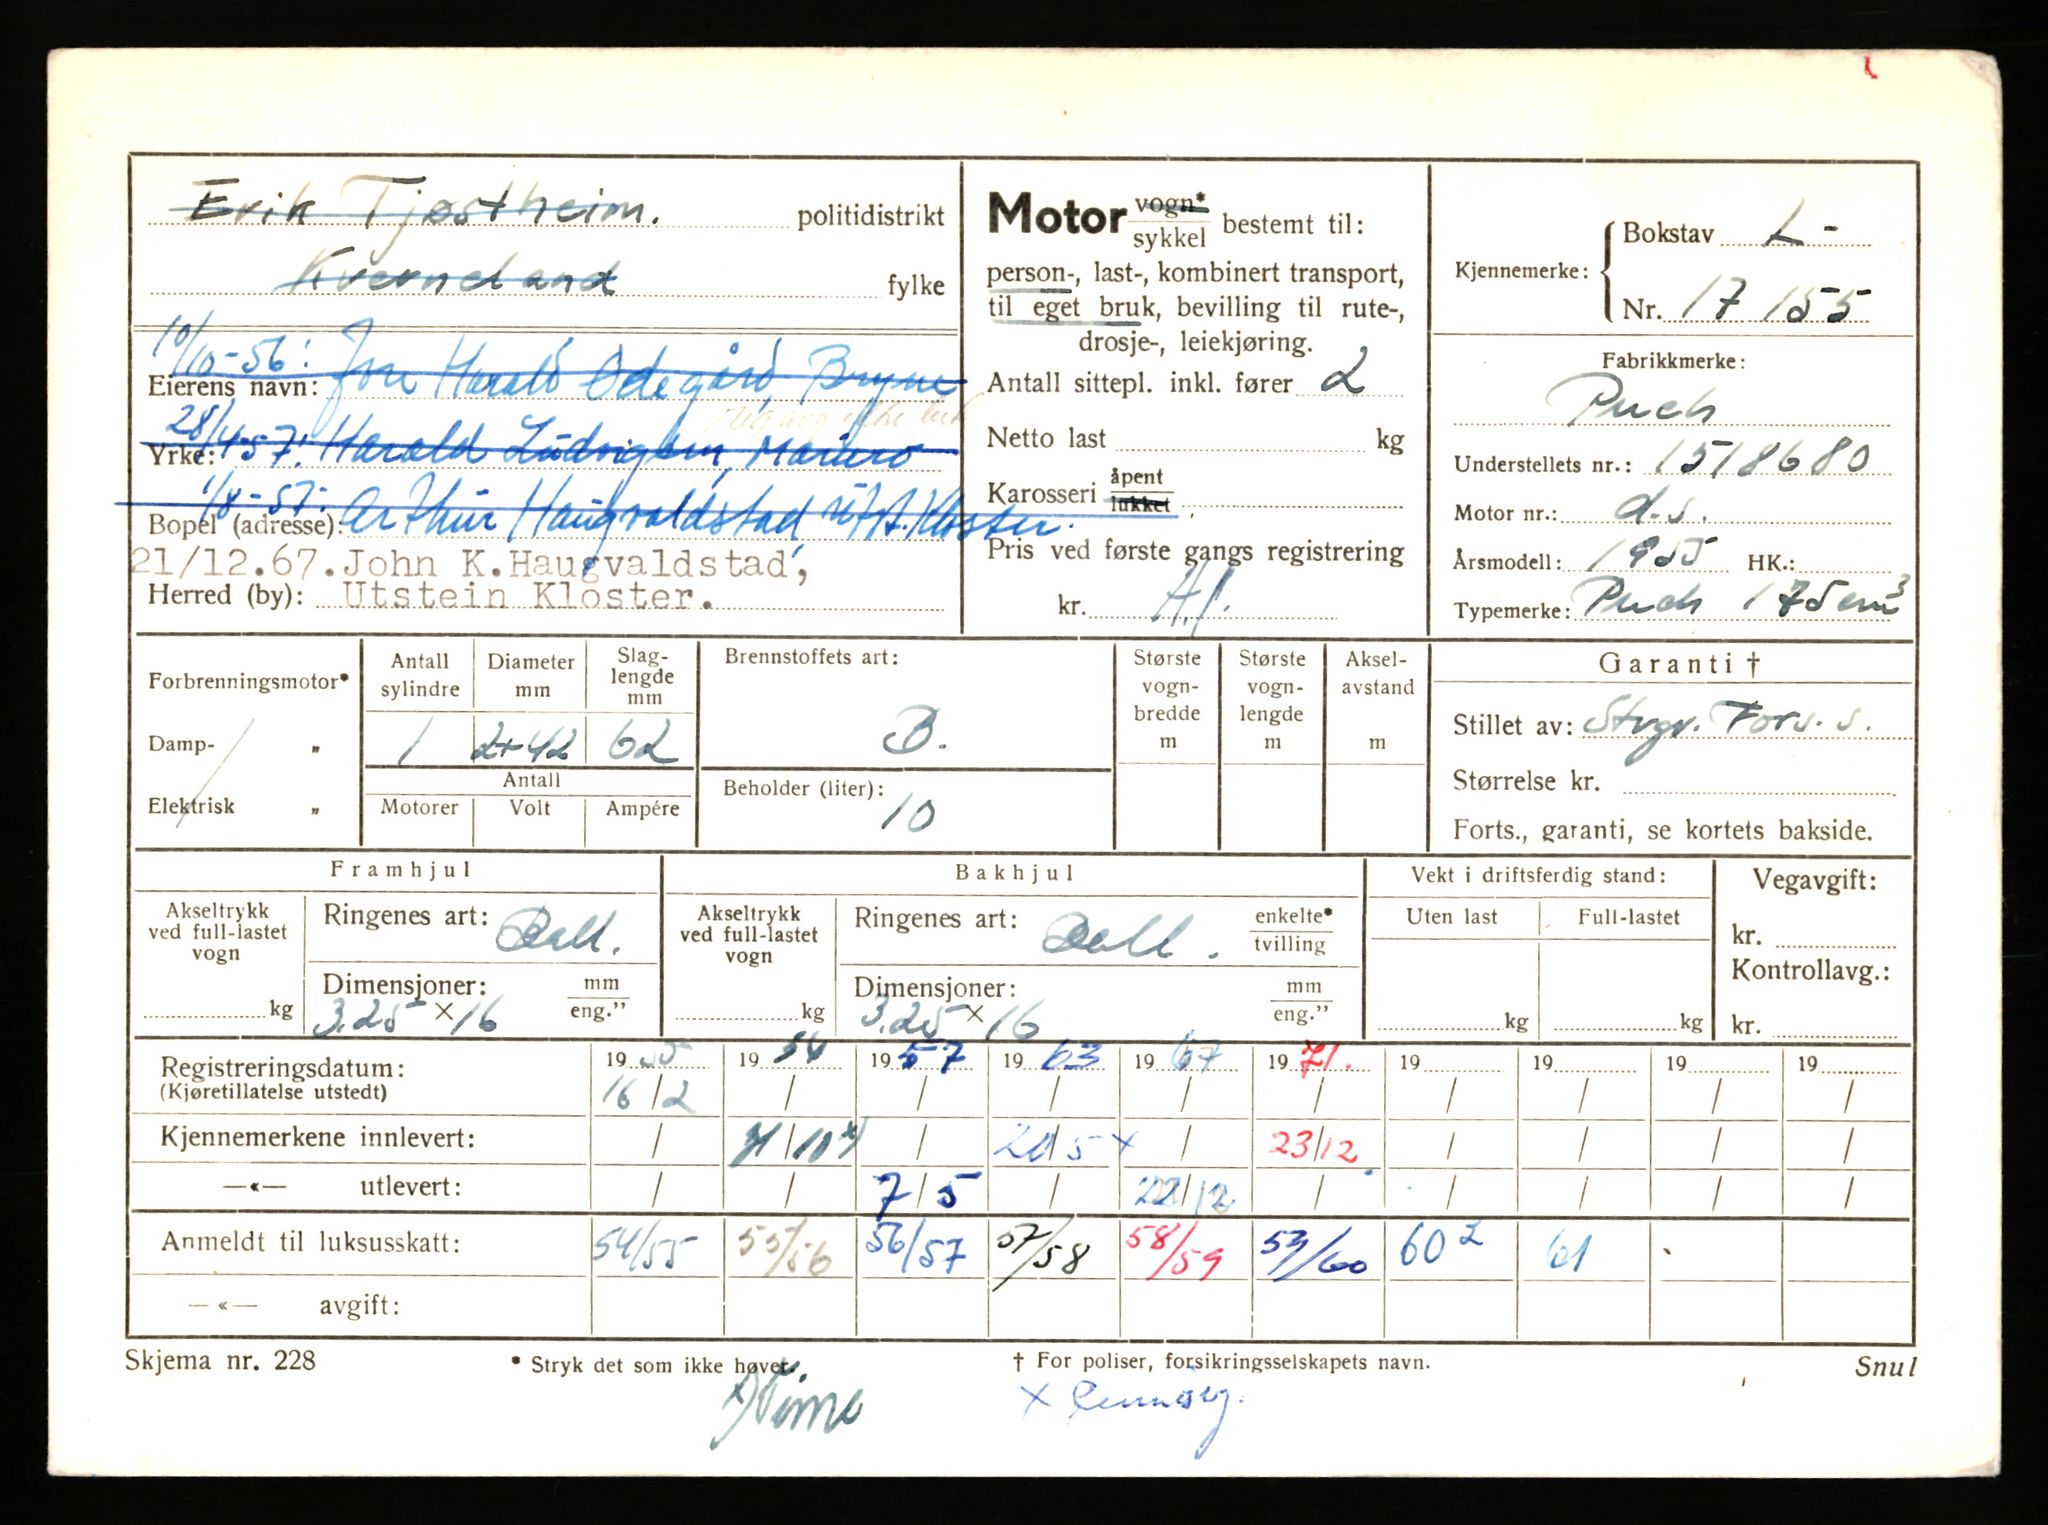 Erik Tjøstheim. politidistrikt
Kverneland fylke
10/10-56: Jon Harald Ødegård, Bryne
Eierens navn:
28/4-57: Harald Ludvigsen, Mariero
Yrke:
1/8-57: Arthur Haugvaldstad, Utst. Kloster.
Bopel (adresse):
21/12.67. John K. Haugvaldstad,
Herred (by): Utstein Kloster.
Motor vogn* / sykkel bestemt til:
person-, last-, kombinert transport,
til eget bruk, bevilling til rute-,
drosje-, leiekjøring.
Antall sittepl. inkl. fører 2
Netto last kg
Karosseri åpent / lukket
Pris ved første gangs registrering
kr.
Kjennemerke: Bokstav L-
Nr. 17155
Fabrikkmerke:
Puch
Understellets nr.: 1518680
Motor nr.: d.s.
Årsmodell: 1955 HK.:
Typemerke: Puch 175 cm³
Forbrenningsmotor*
Damp- „
Elektrisk „
Antall sylindre
1
Diameter mm
2+42
Slag-lengde mm
62
Antall
Motorer Volt Ampére
Brennstoffets art:
B.
Beholder (liter):
10
Største vogn-bredde m
Største vogn-lengde m
Aksel-avstand m
Garanti †
Stillet av: Storgr. Fors. s.
Størrelse kr.
Forts., garanti, se kortets bakside.
Framhjul
Akseltrykk ved full-lastet vogn
kg
Ringenes art: Ball.
Dimensjoner: mm / eng.”
3.25 × 16
Bakhjul
Akseltrykk ved full-lastet vogn
kg
Ringenes art: Ball. enkelte* / tvilling
Dimensjoner: mm / eng.”
3.25 × 16
Vekt i driftsferdig stand:
Uten last Full-lastet
kg kg
Vegavgift:
kr.
Kontrollavg.:
kr.
Registreringsdatum: 1955 1956 1957 1963 1967 1971. 19 19 19 19
(Kjøretillatelse utstedt) 16/2 / / / / / / / / /
Kjennemerkene innlevert: / /10 x) / 20/5 x / 23/12. / / / /
—«— utlevert: / / 7/5 / 22/12 / / / / /
Anmeldt til luksusskatt: 54/55 55/56 56/57 57/58 58/59 59/60 60² 61
—«— avgift:
Skjema nr. 228 * Stryk det som ikke høver. † For poliser, forsikringsselskapets navn. Snul
x) Time
x Rennesøy.